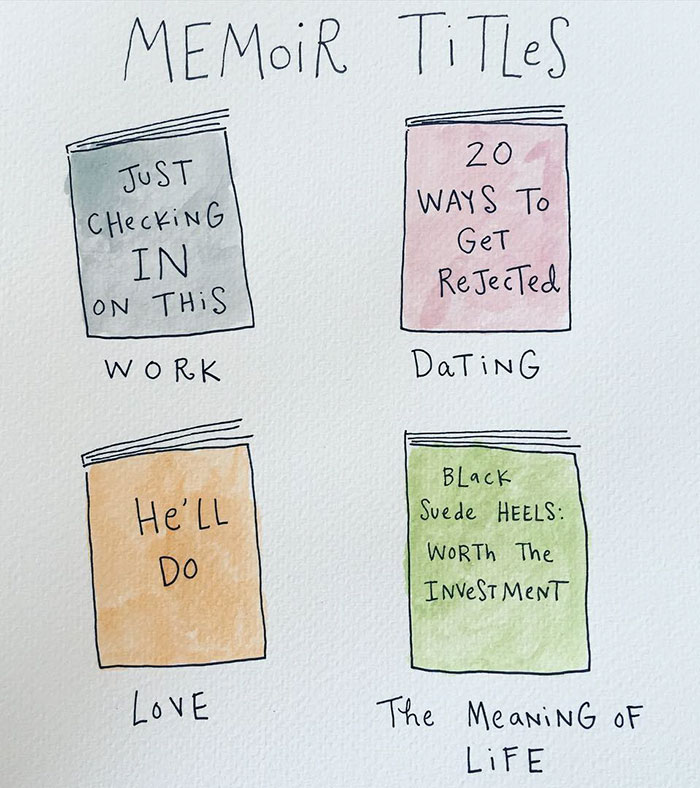 MEMOiR TiTLeS
JuST
CHecKiNG
IN
ON THiS
WORK
20
WAYS To
GeT
ReJecTed
DaTiNG
He'LL
DO
LOVE
BLacK
Suede HEELS:
WORTh The
INVeSTMeNT
The MeaNiNG OF
LiFE